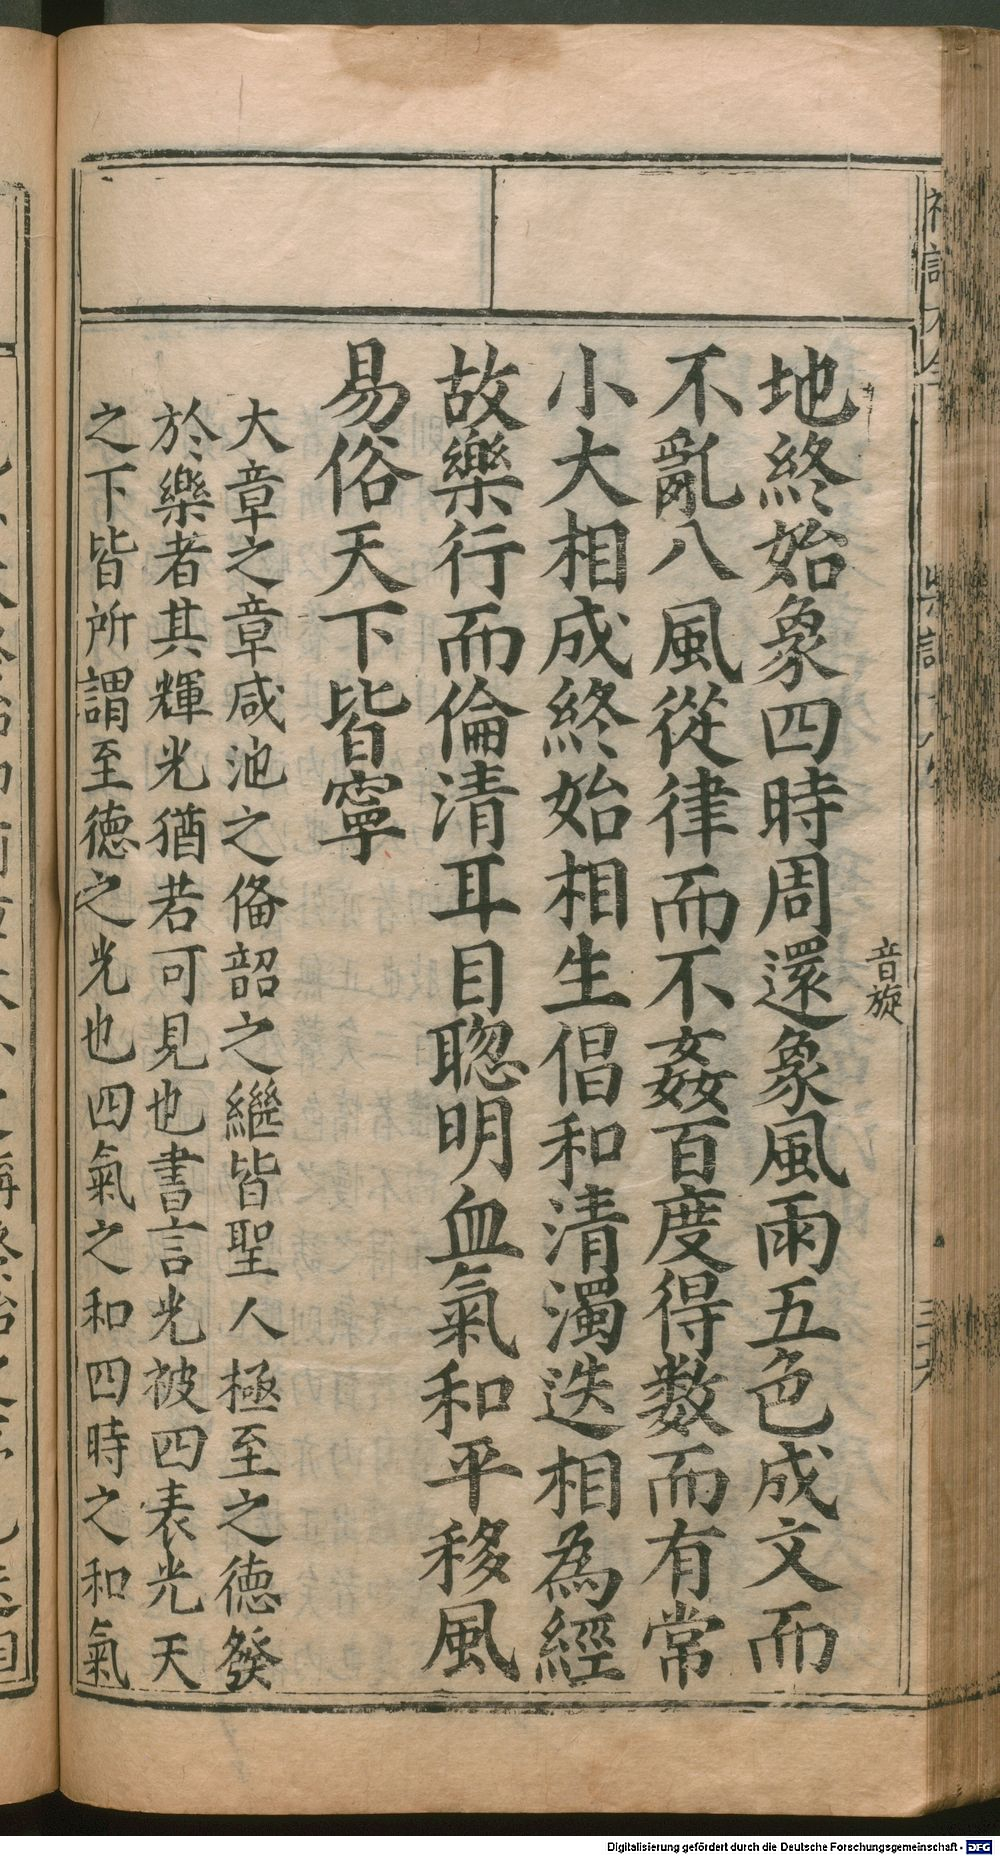 音旋
地終始象四時周還象風雨五色成文而
不亂八風從律而不姦百度得数而有常
小大相成終始相生倡和清濁迭相為經
故樂行而倫清耳目聦明血氣和平移風
易俗天下皆寧
大章之章咸池之俻韶之繼皆聖人極至之德發
於樂者其輝光猶若可見也書言光被四表光天
之下皆所謂至德之光也四氣之和四時之和氣
Digitalisierung gefördert durch die Deutsche Forschungsgemeinschaft - DFG